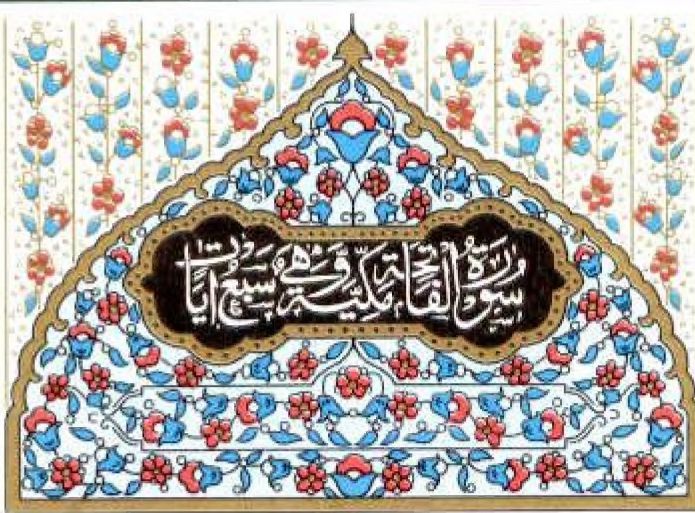 سُورَةُ الفَاتِحَة مَكِيَّة وَهِيَ سَبْعُ اٰيَات